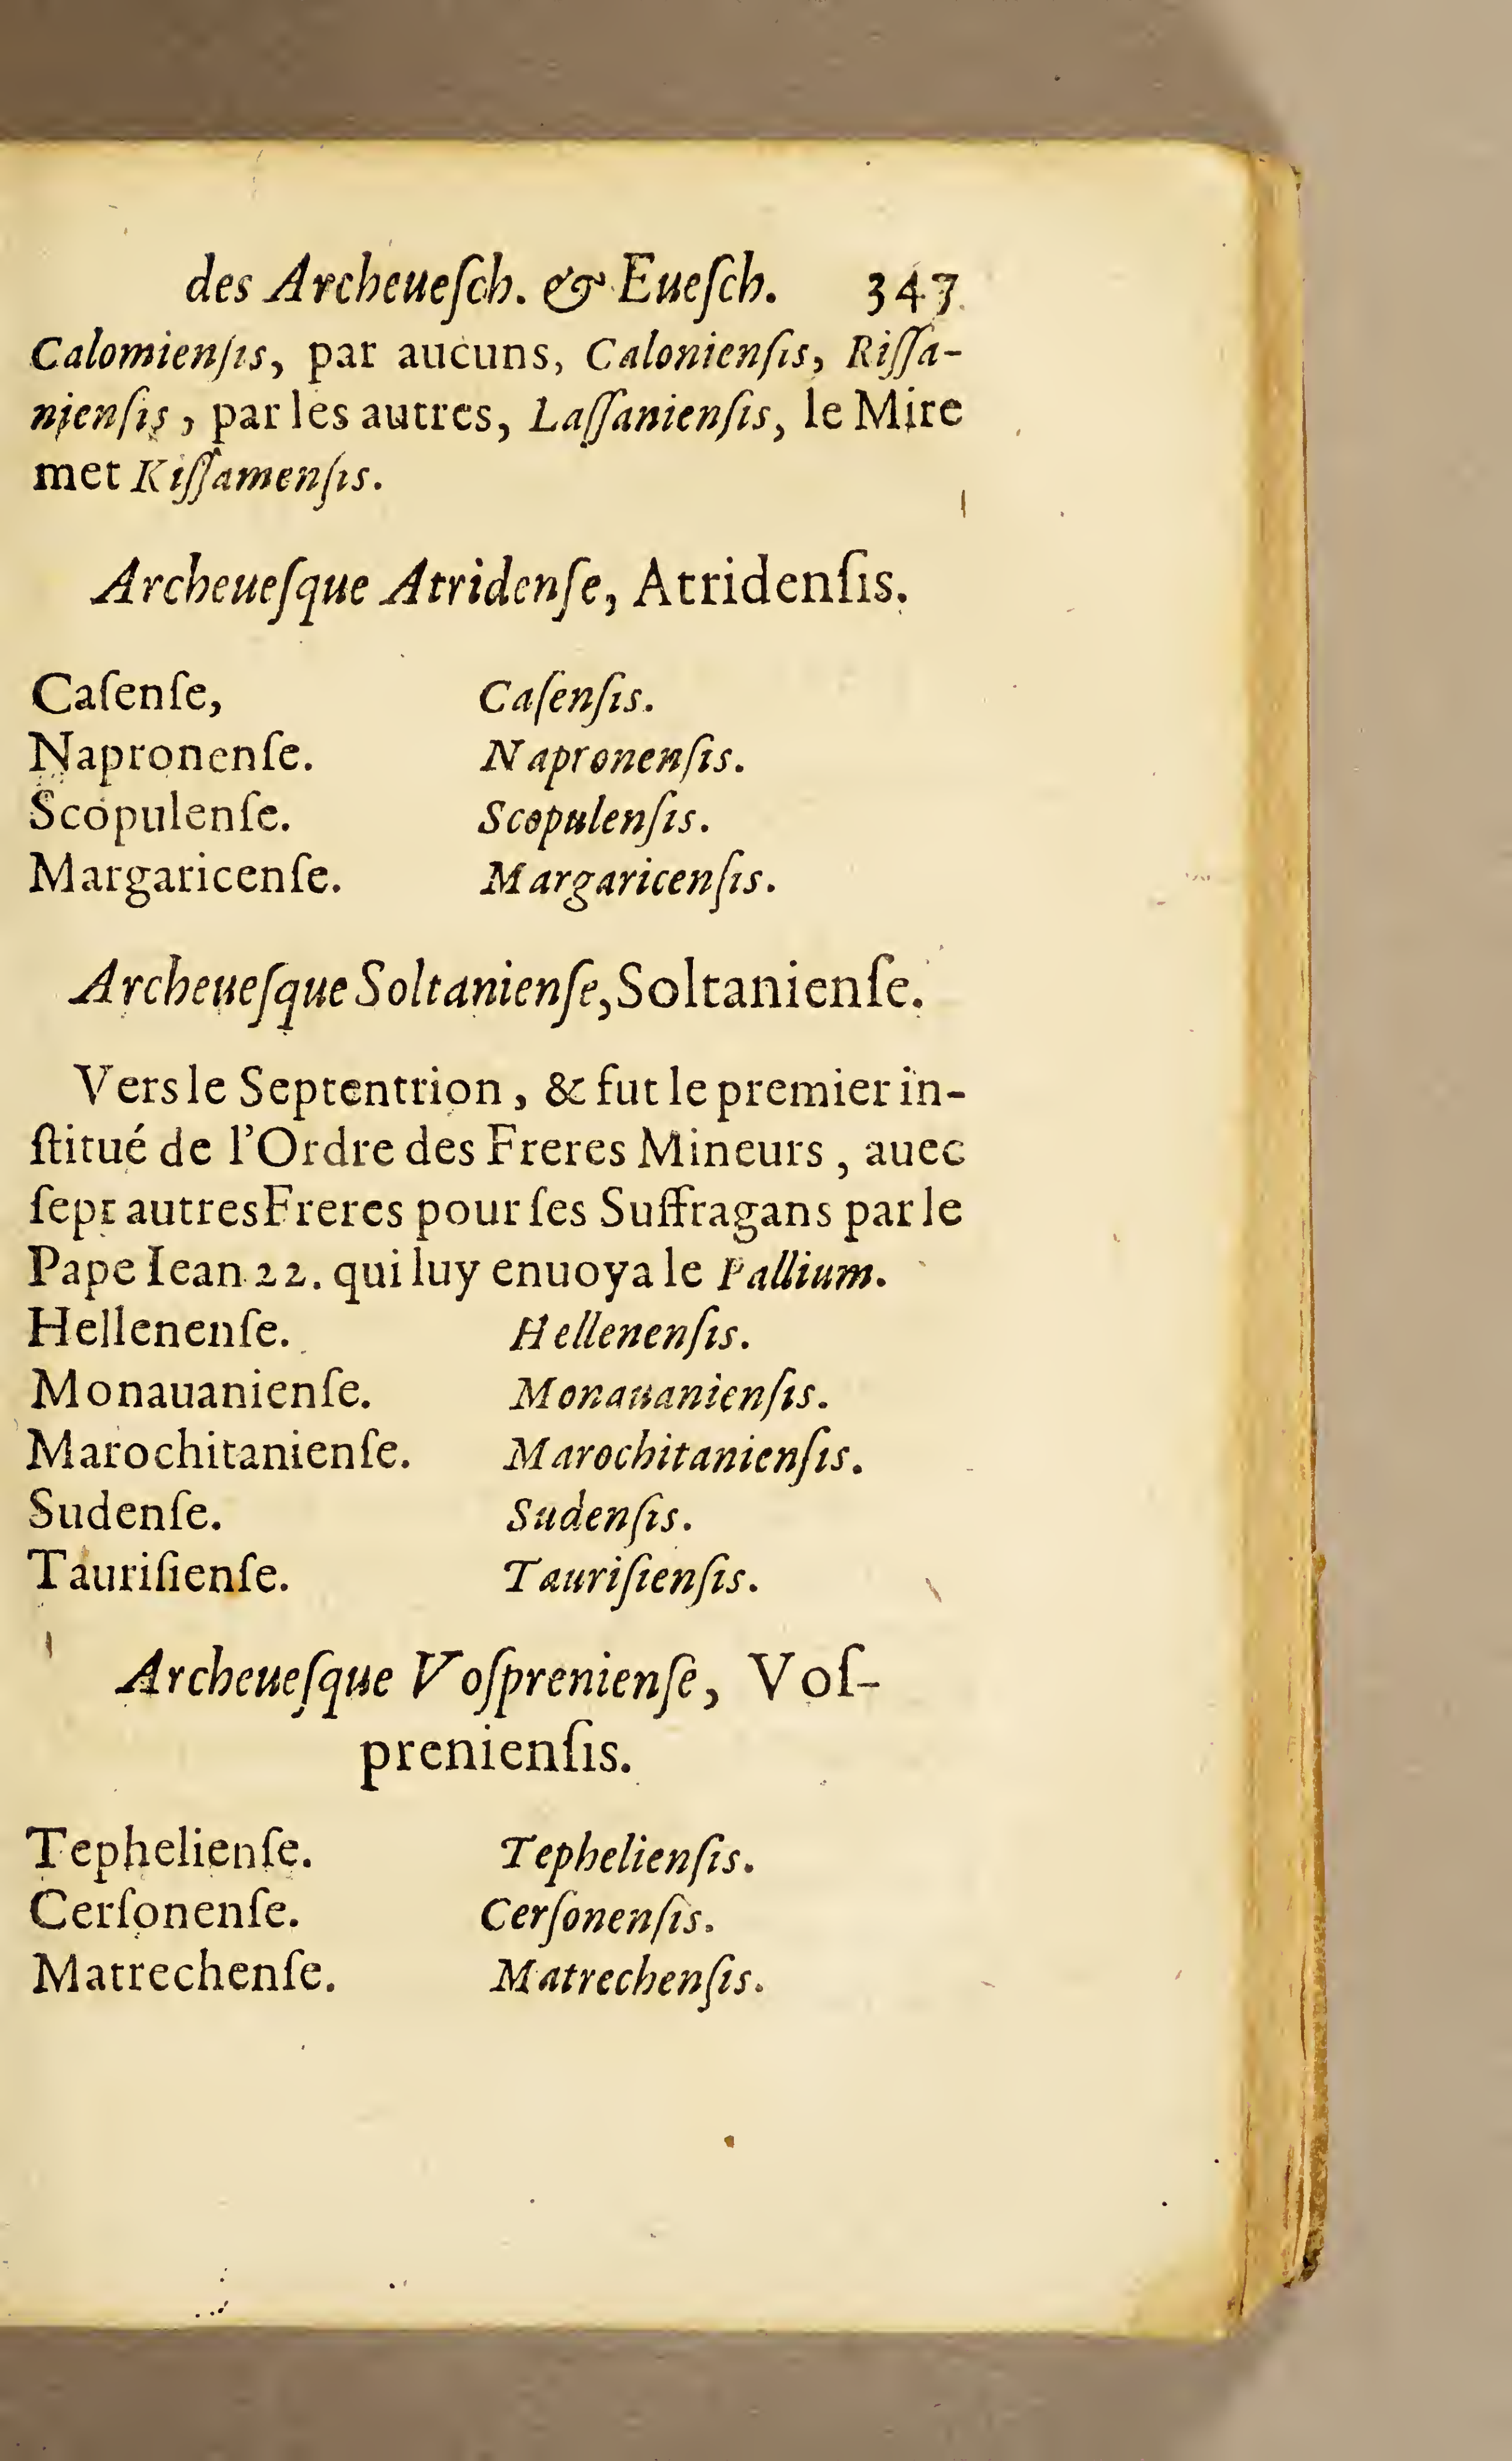 des Archeueſch. & Eueſch. 347
Calomienſis, par aucuns, Calonienſis, Riſſa-
nienſis, par les autres, Laſſanienſis, le Mire
met Kiſſamenſis.
Archeueſque Atridenſe, Atridenſis.
Caſenſe, Caſenſis.
Napronenſe. Napronenſis.
Scopulenſe. Scopulenſis.
Margaricenſe. Margaricenſis.
Archeueſque Soltanienſe, Soltanienſe.
Vers le Septentrion, & fut le premier in-
ſtitué de l'Ordre des Freres Mineurs, auec
ſept autres Freres pour ſes Suffragans par le
Pape Iean 22. qui luy enuoya le Pallium.
Hellenenſe. Hellenenſis.
Monauanienſe. Monauanienſis.
Marochitanienſe. Marochitanienſis.
Sudenſe. Sudenſis.
Tauriſienſe. Tauriſienſis.
Archeueſque Voſprenienſe, Voſ-
prenienſis.
Tephelienſe. Tephelienſis.
Cerſonenſe. Cerſonenſis.
Matrechenſe. Matrechenſis.